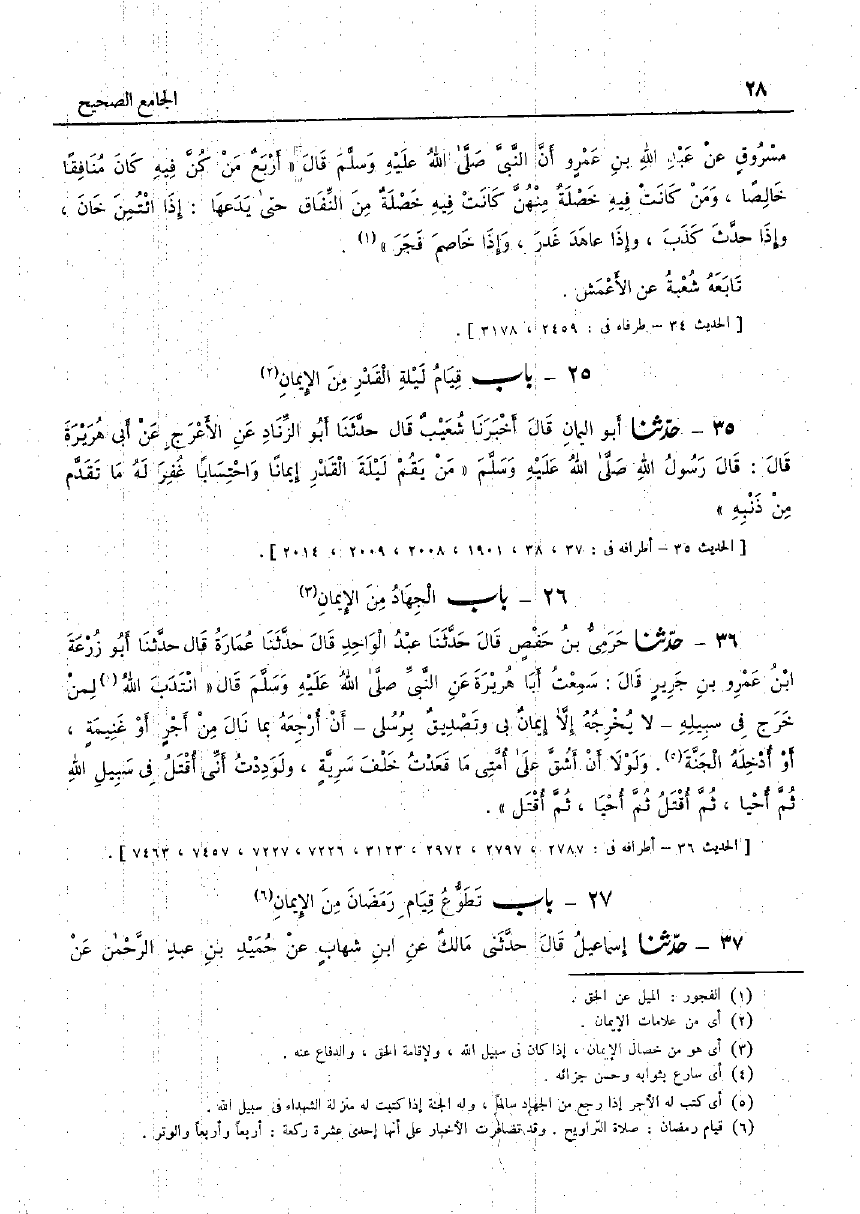 ٢٨
الجامع الصحيح
مَسْرُوقٍ عنْ عَبْدِ اللهِ بنِ عَمْرٍو أَنَّ النَّبِيَّ صَلَّىٰ اللهُ عَلَيْهِ وَسَلَّمَ قَالَ « أَرْبَعٌ مَنْ كُنَّ فِيهِ كَانَ مُنَافِقًا
خَالِصًا ، وَمَنْ كَانَتْ فِيهِ خَصْلَةٌ مِنْهُنَّ كَانَتْ فِيهِ خَصْلَةٌ مِنَ النِّفَاقِ حتىٰ يَدَعهَا : إِذَا ائْتُمِنَ خَانَ ،
وإِذَا حدَّثَ كَذَبَ ، وإِذَا عاهَدَ غَدرَ ، وَإِذَا خاصمَ فَجَرَ »(١) .
تَابَعَهُ شُعْبَةُ عن الأَعْمَشِ .
[ الحديث ٣٤ – طرفاه فى : ٢٤٥٩ ، ٣١٧٨ ] .
٢٥ – باب قِيَامُ لَيْلَةِ الْقَدْرِ مِنَ الإِيمانِ(٢)
٣٥ – حدّثنا أَبو اليمانِ قَالَ أَخْبَرَنَا شُعَيْبٌ قَال حدَّثَنَا أَبُو الزِّنَادِ عَنِ الأَعْرَجِ عَنْ أَبى هُرَيْرَةَ
قَالَ : قَالَ رَسُولُ اللهِ صَلَّىٰ اللهُ عَلَيْهِ وَسَلَّمَ « مَنْ يَقُمْ لَيْلَةَ الْقَدْرِ إِيمَانًا وَاحْتِسَابًا غُفِرَ لَهُ مَا تَقَدَّم
مِنْ ذَنْبِهِ »
[ الحديث ٣٥ – أطرافه فى : ٣٧ ، ٣٨ ، ١٩٠١ ، ٢٠٠٨ ، ٢٠٠٩ ، ٢٠١٤ ] .
٢٦ – باب الْجِهَادُ مِنَ الإِيمانِ(٣)
٣٦ – حدّثنا حَرَمِىُّ بنُ حَفْصٍ قَالَ حَدَّثَنَا عبْدُ الْوَاحِدِ قَالَ حدَّثَنَا عُمَارَةُ قَال حدَّثَنَا أَبُو زُرْعَةَ
ابْنُ عَمْرِو بنِ جَرِيرٍ قَالَ : سَمِعْتُ أَبَا هُرَيْرَةَ عَنِ النَّبِىِّ صلَّىٰ اللهُ عَلَيْهِ وَسَلَّمَ قَال « انْتَدَبَ اللهُ(٤) لِمنْ
خَرَج فِى سبِيلِهِ – لا يُخْرِجُهُ إِلَّا إِيمانٌ بى وتَصْدِيقٌ بِرُسُلى – أَنْ أُرْجِعَهُ بما نَالَ مِنْ أَجْرٍ أَوْ غَنِيمَةٍ ،
أَوْ أُدْخِلَهُ الْجَنَّةَ(٥) . وَلَوْلَا أَنْ أَشُقَّ عَلىٰ أُمَّتِى مَا قَعَدْتُ خَلْفَ سَرِيَّةٍ ، ولَوَدِدْتُ أَنِّى أُقْتَلُ فى سَبِيلِ اللهِ
ثُمَّ أُحْيا ، ثُمَّ أُقْتَلُ ثُمَّ أُحْيَا ، ثُمَّ أُقْتَل » .
[ الحديث ٣٦ – أطرافه فى : ٢٧٨٧ ، ٢٧٩٧ ، ٢٩٧٢ ، ٣١٢٣ ، ٧٢٢٦ ، ٧٢٢٧ ، ٧٤٥٧ ، ٧٤٦٣ ] .
٢٧ – باب تَطَوُّعُ قِيَامِ رَمَضَانَ مِنَ الإِيمَانِ(٦)
٣٧ – حدّثنا إسماعيلُ قَالَ حدَّثَنى مَالكٌ عنِ ابنِ شهابٍ عنْ حُمَيْدِ بنِ عبدِ الرَّحْمٰن عَنْ
(١) الفجور : الميل عن الحق .
(٢) أى من علامات الإيمان .
(٣) أى هو من خصال الإيمان ، إذا كان فى سبيل الله ، ولإقامة الحق ، والدفاع عنه .
(٤) أى سارع بثوابه وحسن جزائه .
(٥) أى كتب له الأجر إذا رجع من الجهاد سالمًا ، وله الجنة إذا كتبت له منزلة الشهداء فى سبيل الله .
(٦) قيام رمضان : صلاة التراويح . وقد تضافرت الأخبار على أنها إحدى عشرة ركعة : أربعاً وأربعاً والوتر .